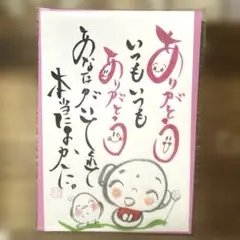 ありがとう
いつもいつも
ありがとう
あなたがいてくれて
本当によかった。